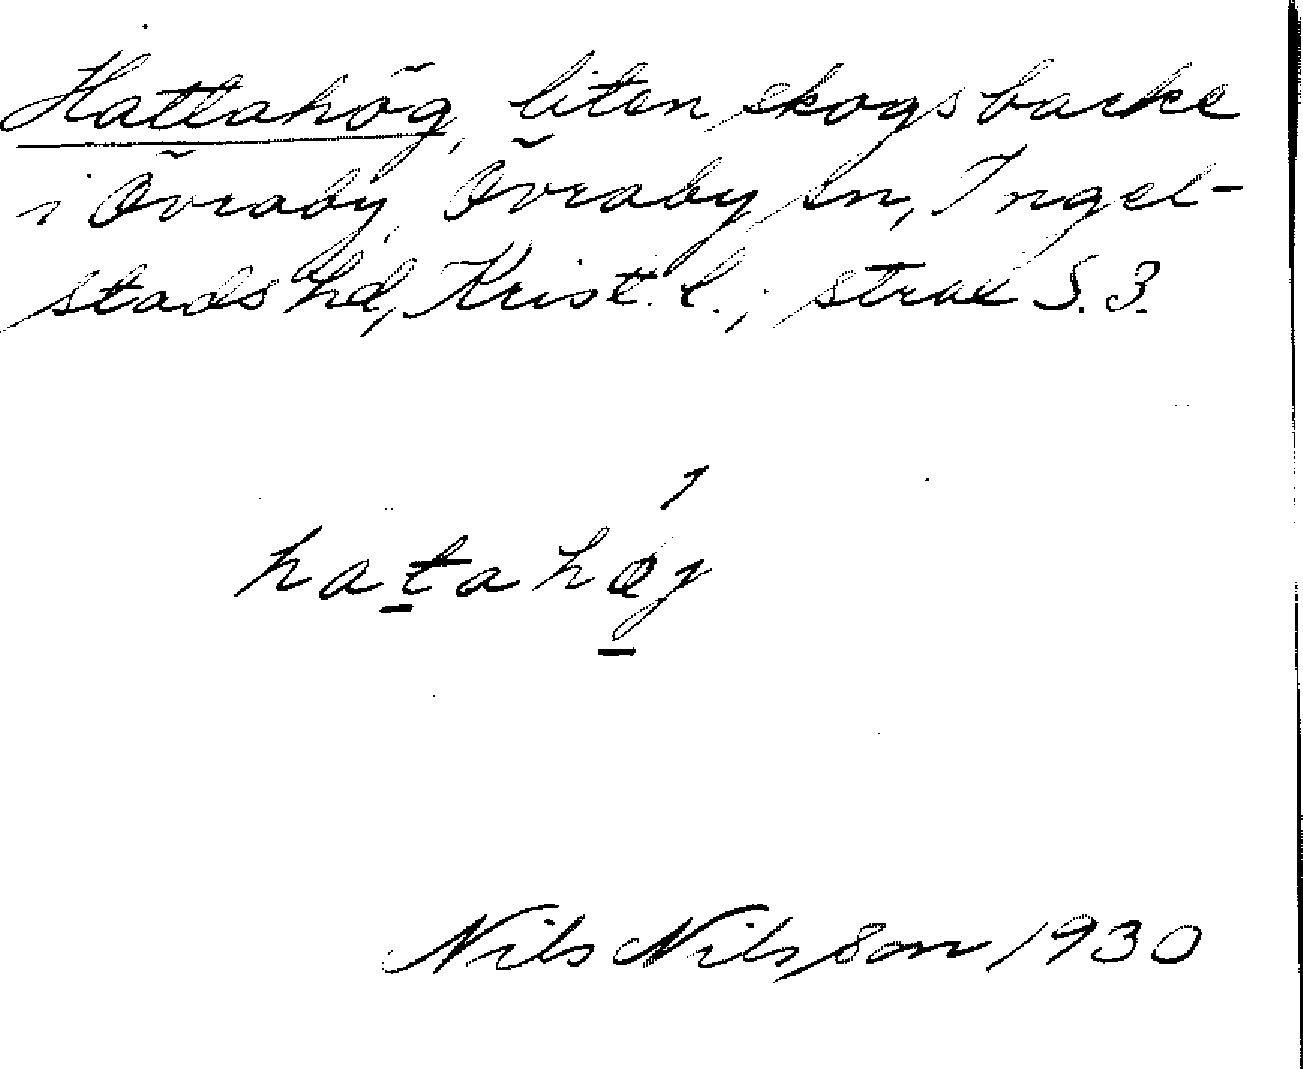 Hattahög, liten skogsbacke
i Övraby, Övraby sn, Ingel-
stads hd, Krist. l.; strax S. 3.
hatahøj
Nils Nilsson 1930